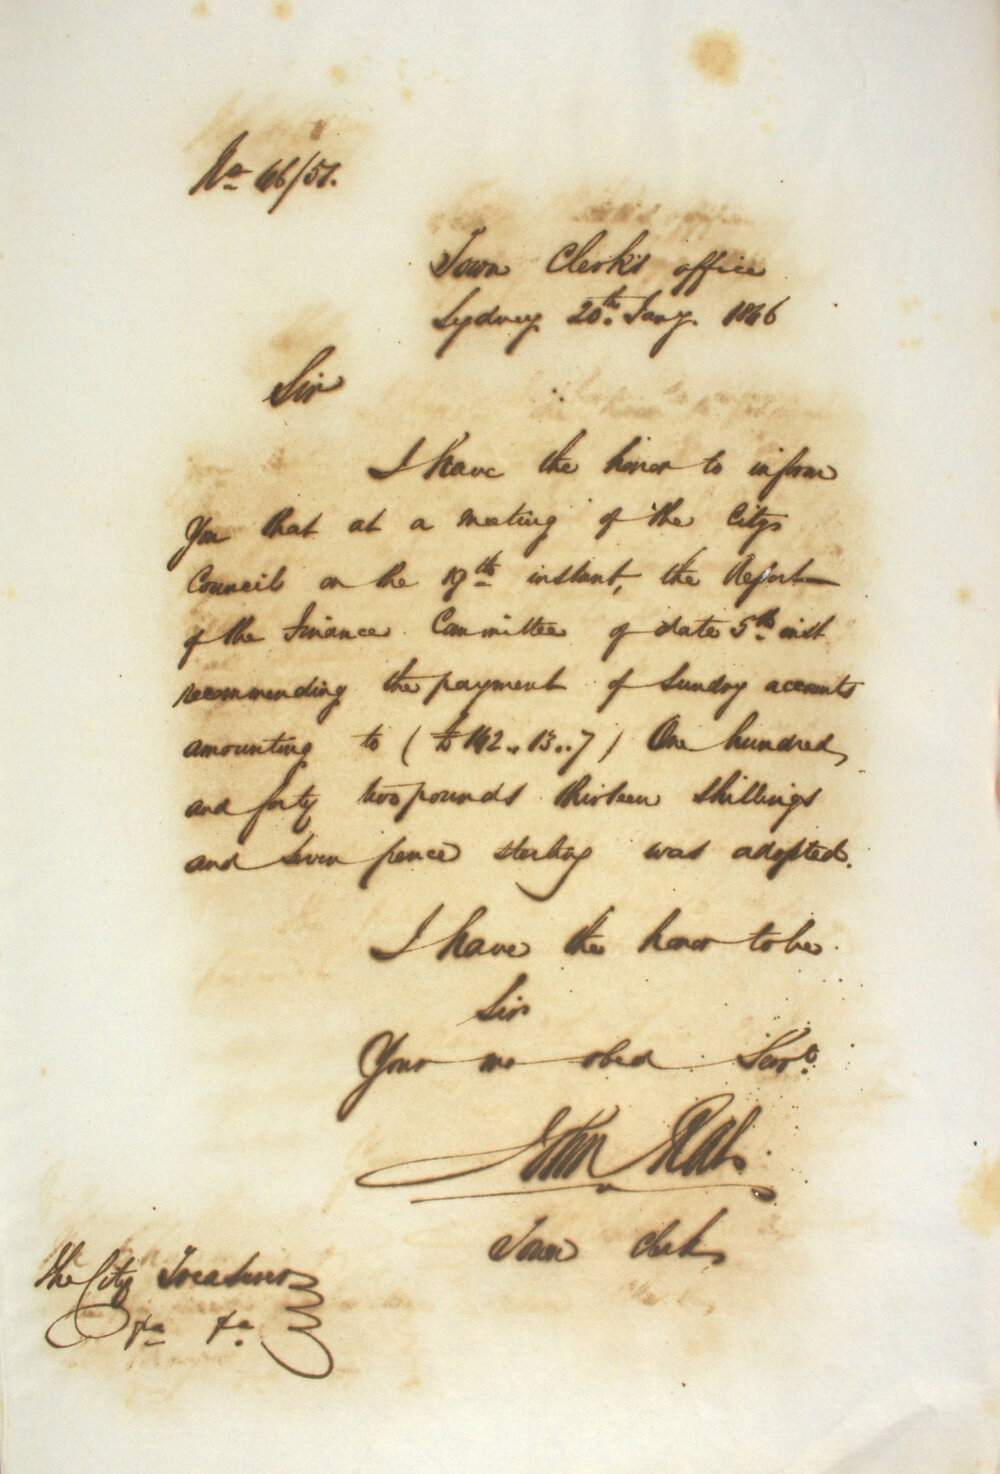 No 66/51.
Town Clerk's office
Sydney 20th Jany. 1866
Sir
I have the honor to inform
you that at a meeting of the City
Council on the 19th instant, the Report
of the Finance Committee of date 5th inst
recommending the payment of Sundry accounts
amounting to (£142..13..7) One hundred
and forty two pounds thirteen shillings
and seven pence sterling was adopted.
I have the honor to be
Sir
Your mo obed Servt.
John Rae
Town Clerk
The City Treasurer
&a &a